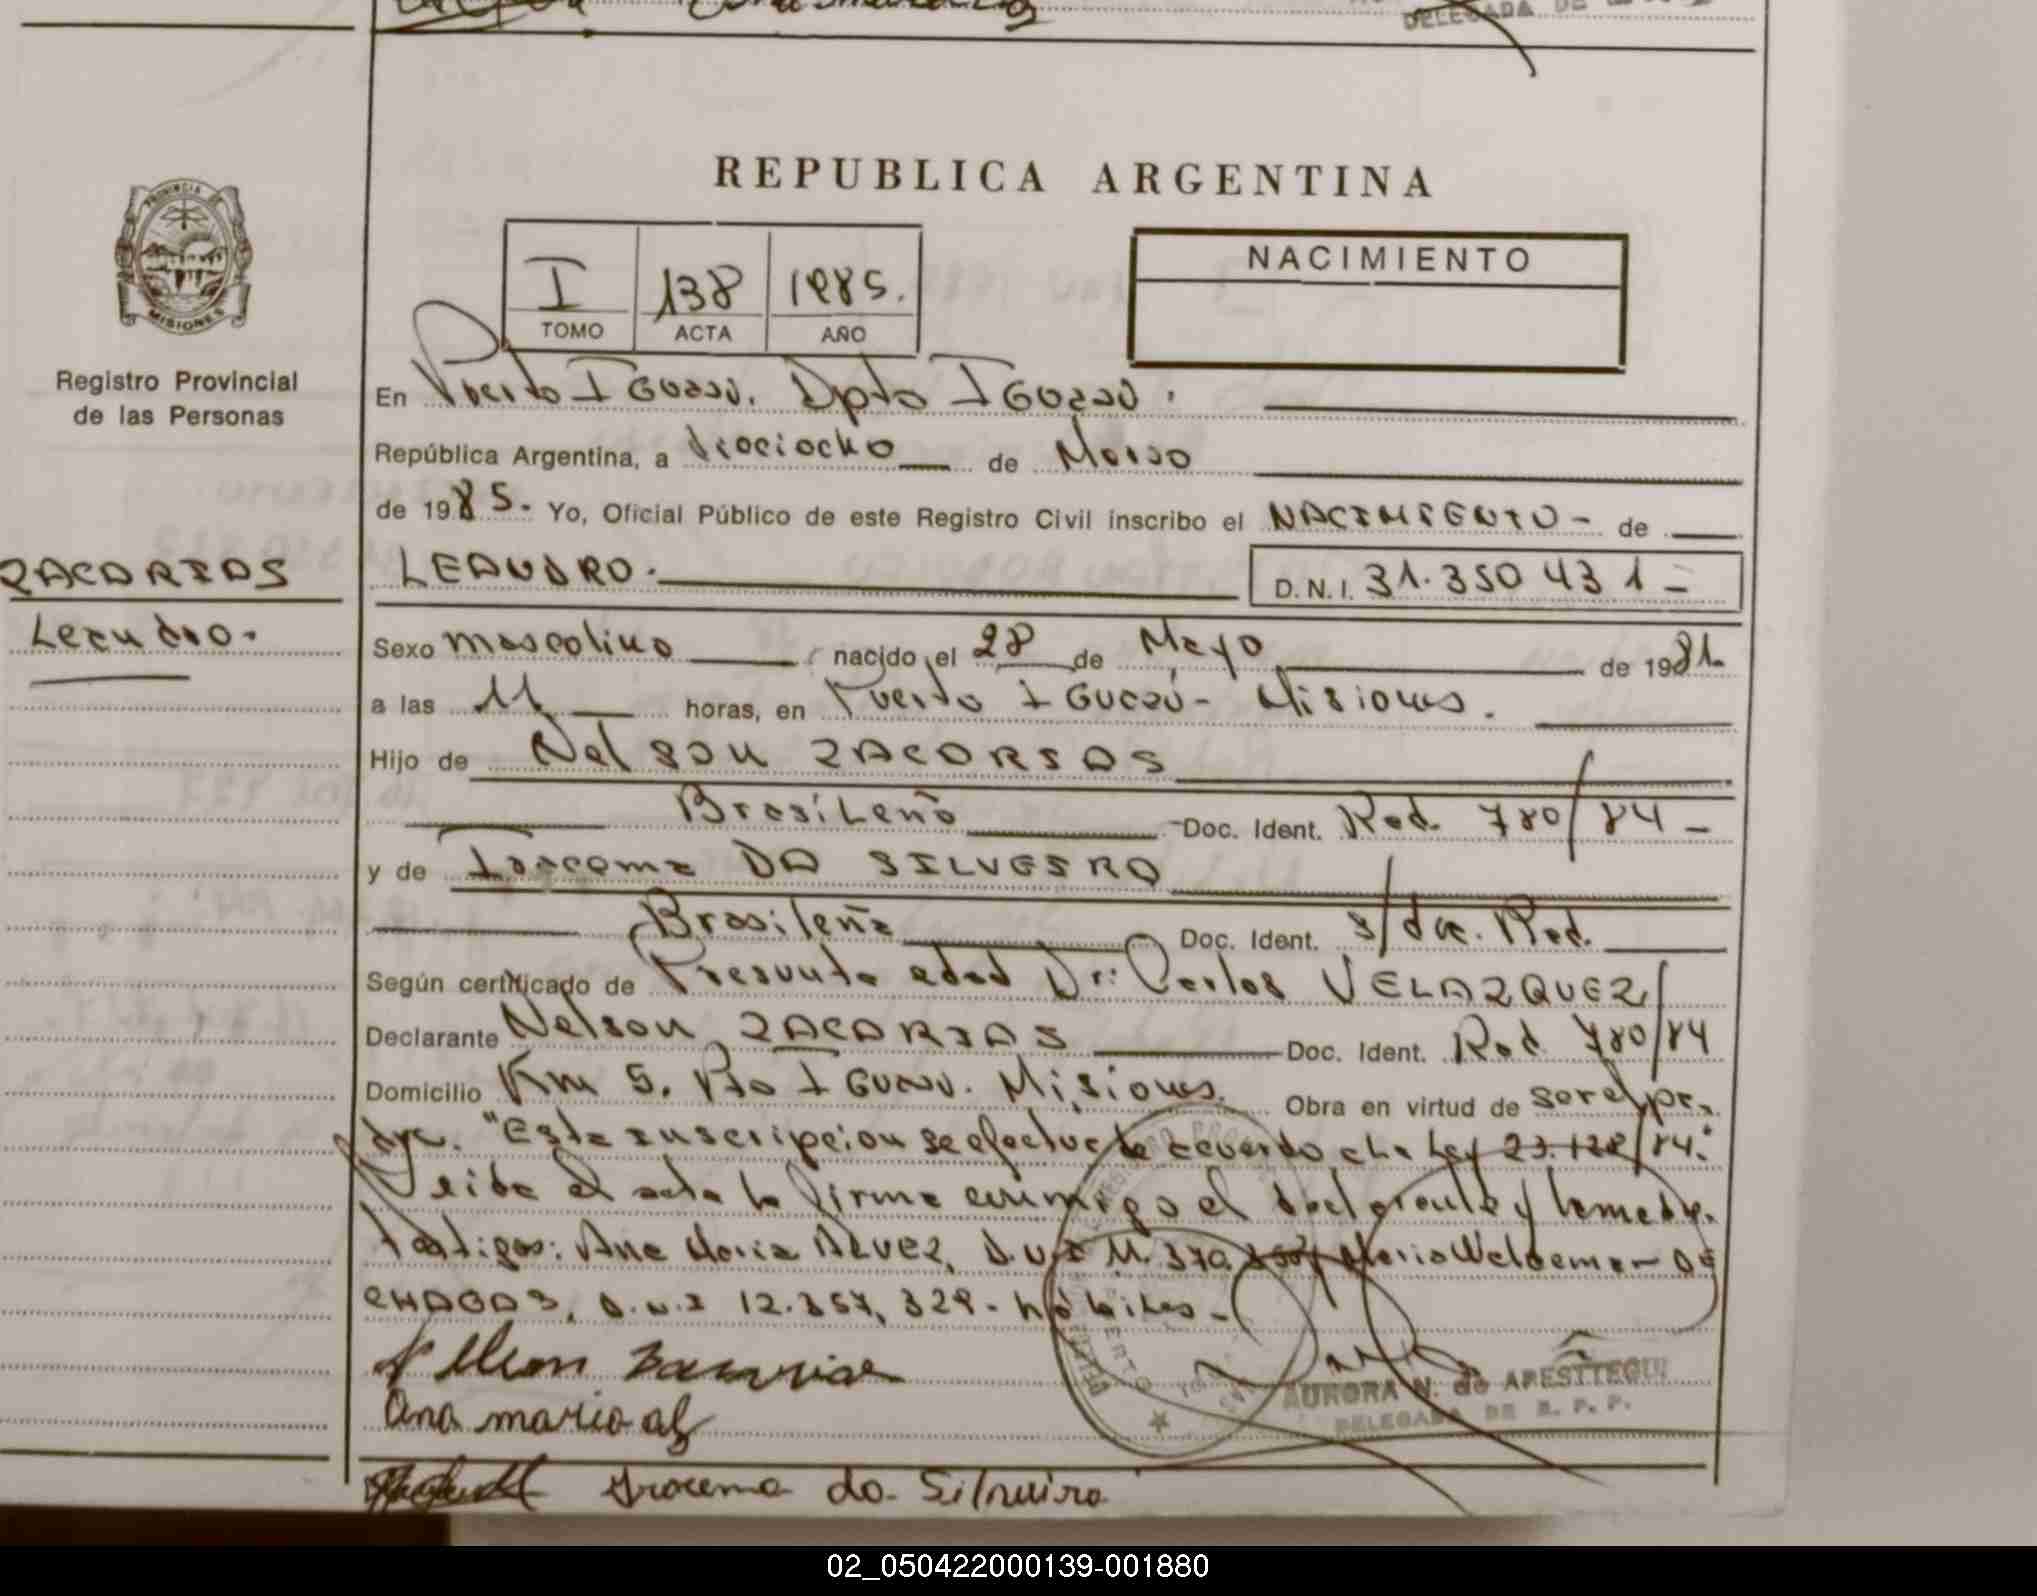 REPUBLICA ARGENTINA
PROVINCIA DE
MISIONES
Registro Provincial
de las Personas
NACIMIENTO
I 138 1985.
TOMO ACTA AÑO
En Puerto Iguazú. Dpto Iguazú.
República Argentina, a dieciocho de Marzo
de 1985. Yo, Oficial Público de este Registro Civil inscribo el NACIMIENTO - de
ZACARIAS
Leandro.
LEANDRO. D.N.I. 31.350 431 -
Sexo masculino, nacido el 28 de Mayo de 1981.
a las 11 horas, en Puerto Iguazú - Misiones.
Hijo de Nelson ZACARIAS
Brasileño Doc. Ident. Rad. 780/84 -
y de DA SILVEIRA
Brasileña Doc. Ident. s/doc. Rad.
Según certificado de Presunta edad Dr: Carlos VELAZQUEZ
Declarante Nelson ZACARIAS Doc. Ident. Rad 780/84
Domicilio Km 5. Pto Iguazú. Misiones. Obra en virtud de ser el pa-
dre. "Esta inscripcion se efectua de acuerdo a la Ley 23.128/84."
Leida el acta la firma conmigo el declarante y la madre.
testigos: Ana Maria ALVEZ, D.N.I M. 370. Mario Waldemar DE
CHAGAS, D.N.I 12.357.329 - hábiles -
Nelson Zacarias
Ana maria alz
AURORA N. de APESTTEGUI
DELEGADA DE R. P. P.
Iracema da Silveira
02_050422000139-001880